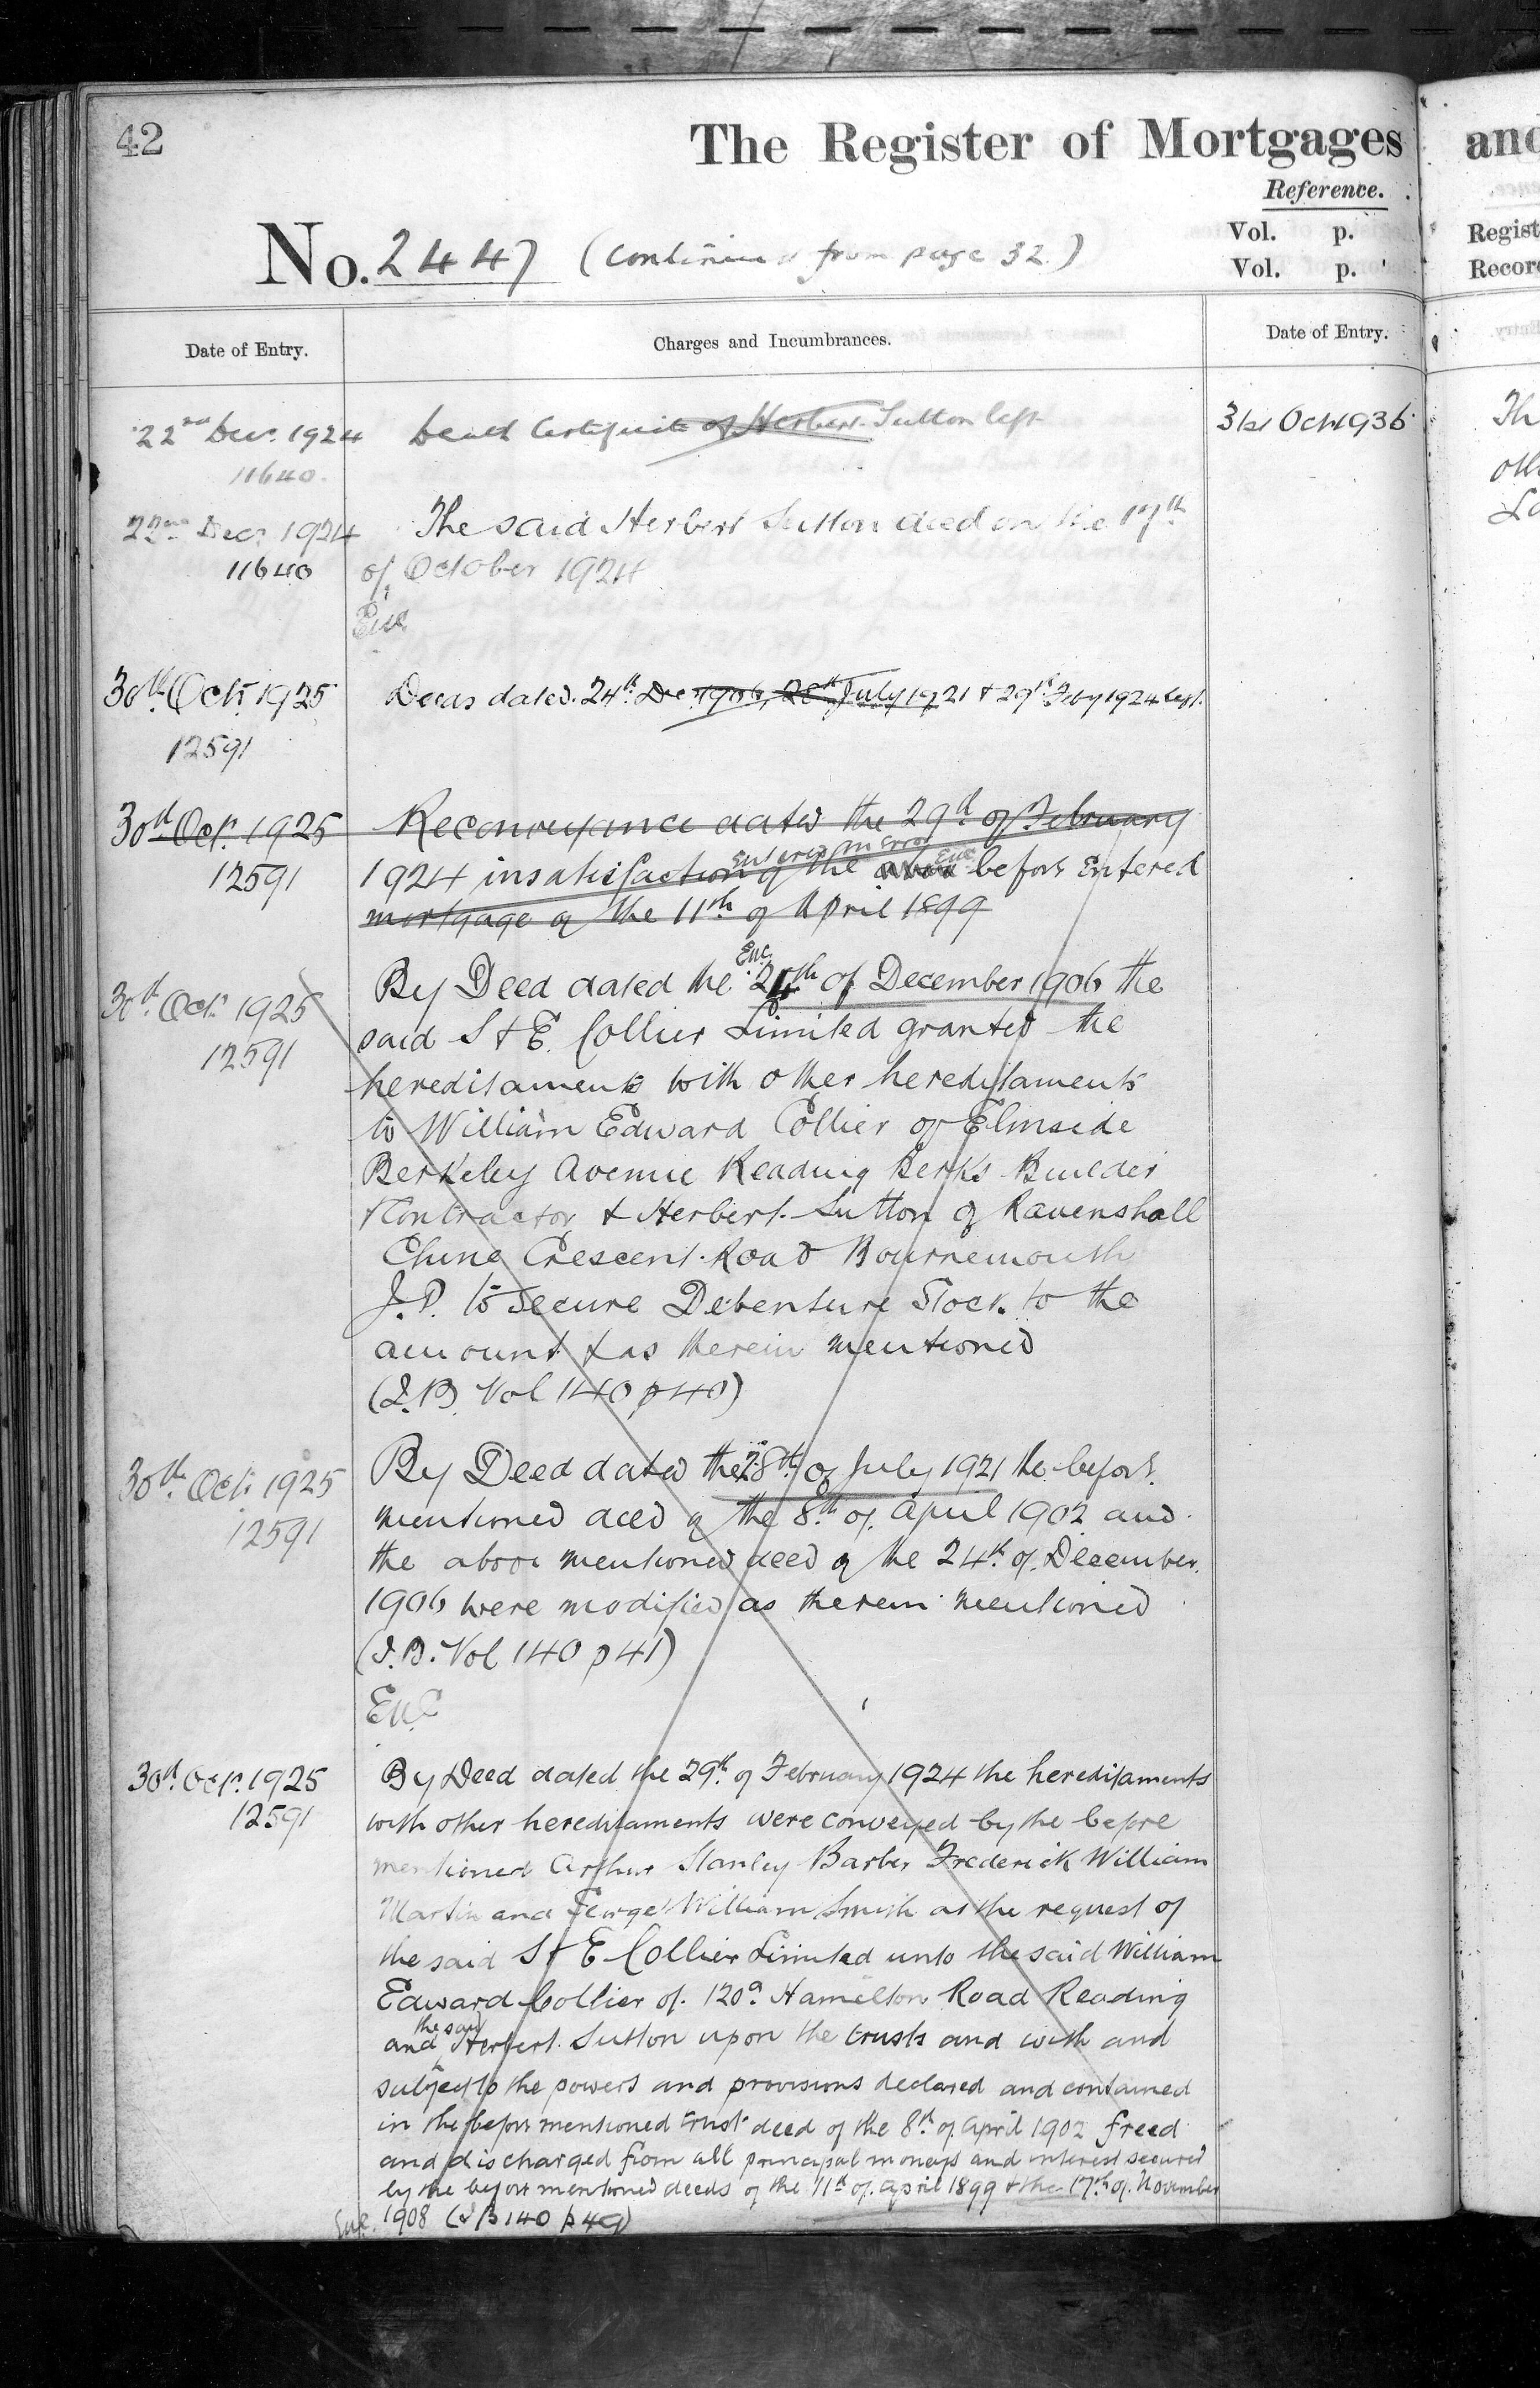 42
The Register of Mortgages
Reference.
Vol. p.
Vol. p.
No. 2447 (Continued from page 32.)
Date of Entry.
Charges and Incumbrances.
Date of Entry.
22nd Decr. 1924 Death Certificate of Herbert Sutton left
11640.
31st Oct 1936
22nd Decr. 1924 The said Herbert Sutton died on the 17th
11640 of October 1924
EWC
30th Octr. 1925 Deeds dated 24th Dec 1906, 28th July 1921 & 29th Feby 1924 left.
12591
30th Octr. 1925 Reconveyance dated the 29th of February
Entered in error EWC
12591 1924 in satisfaction of the above before entered
mortgage of the 11th of April 1899
EWC
30th Octr. 1925 By Deed dated the 24th of December 1906 the
12591 said S & E. Collier Limited granted the
hereditaments with other hereditaments
to William Edward Collier of Elmside
Berkeley Avenue Reading Berks Builder
& Contractor & Herbert Sutton of Ravenshall
Chine Crescent Road Bournemouth
J.P. to secure Debenture Stock to the
amount & as therein mentioned
(I.B. Vol 140 p 40)
30th Octr. 1925 By Deed dated the 28th of July 1921 the before
12591 mentioned deed of the 8th of April 1902 and
the above mentioned deed of the 24th of December
1906 were modified as therein mentioned
(I.B. Vol 140 p 41)
EWC
30th Octr. 1925 By Deed dated the 29th of February 1924 the hereditaments
12591 with other hereditaments were conveyed by the before
mentioned Arthur Stanley Barber Frederick William
Martin and George William Smith at the request of
the said S & E Collier Limited unto the said William
Edward Collier of 120a Hamilton Road Reading
the said
and Herbert Sutton upon the trusts and with and
subject to the powers and provisions declared and contained
in the before mentioned trust deed of the 8th of April 1902 freed
and discharged from all principal moneys and interest secured
by the before mentioned deeds of the 11th of April 1899 & the 17th of November
EWC 1908 (I B 140 p 49)
and
Regist
Record
Th
oth